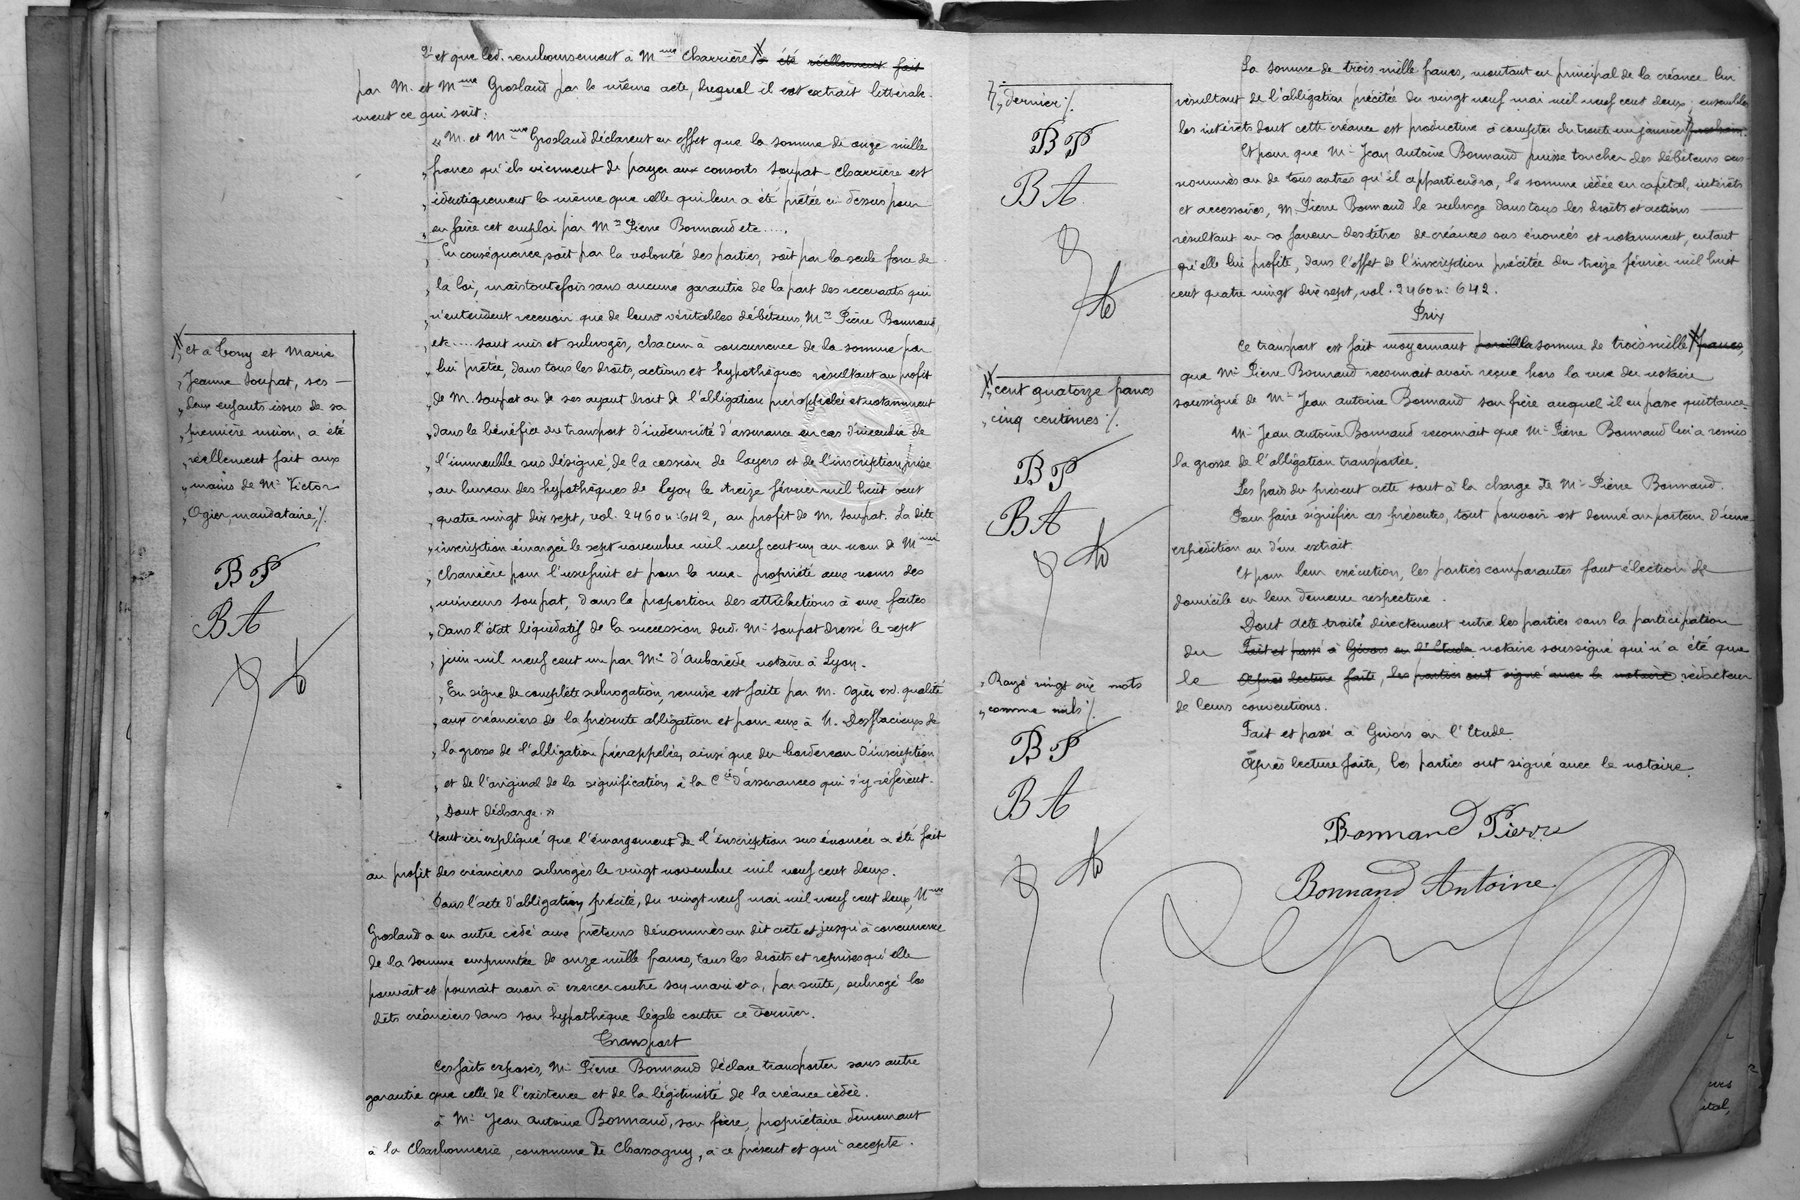 2° et que led. remboursement à Mme Charrière a été réellement fait
par M. et Mme Grosland par le même acte, duquel il est extrait littérale-
ment ce qui suit:
« M. et Mme Grosland déclarent en effet que la somme de onze mille
„ francs qu'ils viennent de payer aux consorts Soupat-Charrière est
„ identiquement la même que celle qui leur a été prêtée ci-dessus pour
„ en faire cet emploi par Mrs Pierre Bonnand etc.....
„ En conséquence, soit par la volonté des parties, soit par la seule force de
„ la loi, mais toutefois sans aucune garantie de la part des recevants qui
„ n'entendent recevoir que de leurs véritables débiteurs, Mrs Pierre Bonnand,
„ etc..... sont mis et subrogés, chacun à concurrence de la somme par
„ lui prêtée, dans tous les droits, actions et hypothèques résultant au profit
„ de M. Soupat ou de ses ayant droit de l'obligation prérappelée et notamment
„ dans le bénéfice du transport d'indemnité d'assurance en cas d'incendie de
„ l'immeuble sus désigné, de la cession de loyers et de l'inscription prise
„ au bureau des hypothèques de Lyon le treize février mil huit cent
„ quatre vingt dix sept, vol. 2460 n: 642, au profit de M. Soupat. La dite
„ inscription émargée le sept novembre mil neuf cent un au nom de Mme
„ Charrière pour l'usufruit et pour la nue-propriété aux noms des
„ mineurs Soupat, dans la proportion des attributions à eux faites
„ dans l'état liquidatif de la succession dud. Mr Soupat dressé le sept
„ juin mil neuf cent un par Me d'Aubarède notaire à Lyon.
„ En signe de complète subrogation, remise est faite par M. Ogier esd. qualité
„ aux créanciers de la présente obligation et pour eux à M. Desflacieux de
„ la grosse de l'obligation prérappelée, ainsi que du bordereau d'inscription
„ et de l'original de la signification à la Cie d'assurances qui s'y réfèrent.
„ Dont décharge. »
Étant ici expliqué que l'émargement de l'inscription sus énoncée a été fait
au profit des créanciers subrogés le vingt novembre mil neuf cent deux.
Dans l'acte d'obligation précité, du vingt neuf mai mil neuf cent deux, Mme
Grosland a en outre cédé aux prêteurs dénommés au dit acte et jusqu'à concurrence
de la somme empruntée de onze mille francs, tous les droits et reprises qu'elle
pouvait et pourrait avoir à exercer contre son mari et a, par suite, subrogé les
dits créanciers dans son hypothèque légale contre ce dernier.
Transport
Ces faits exposés, Mr Pierre Bonnand déclare transporter sans autre
garantie que celle de l'existence et de la légitimité de la créance cédée.
à Mr Jean Antoine Bonnand, son frère, propriétaire demeurant
à la Charbonnerie, commune de Chassagny, à ce présent et qui accepte.
„ et à Tony et Marie
„ Jeanne Soupat, ses
„ deux enfants issus de sa
„ première union, a été
„ réellement fait aux
„ mains de Mr Victor
„ Ogier, mandataire,/.
BP
BA
La somme de trois mille francs, montant en principal de la créance lui
résultant de l'obligation précitée du vingt neuf mai mil neuf cent deux; ensemble
les intérêts dont cette créance est productive à compter du trente un janvier prochain.
Et pour que Mr Jean Antoine Bonnand puisse toucher des débiteurs sus-
nommés ou de tous autres qu'il appartiendra, la somme cédée en capital, intérêts
et accessoires, M. Pierre Bonnand le subroge dans tous les droits et actions
résultant en sa faveur des titres de créances sus énoncés et notamment, en tant
qu'elle lui profite, dans l'effet de l'inscription précitée du treize février mil huit
cent quatre vingt dix sept, vol. 2460 n: 642.
Prix
Ce transport est fait moyennant pareille somme de trois mille francs,
que Mr Pierre Bonnand reconnait avoir reçue hors la vue du notaire
soussigné de Mr Jean Antoine Bonnand son frère auquel il en passe quittance.
Mr Jean Antoine Bonnand reconnait que Mr Pierre Bonnand lui a remis
la grosse de l'obligation transportée.
Les frais du présent acte sont à la charge de Mr Pierre Bonnand.
Pour faire signifier ces présentes, tout pouvoir est donné au porteur d'une
expédition ou d'un extrait.
Et pour leur exécution, les parties comparantes font élection de
domicile en leur demeure respective.
Dont acte traité directement entre les parties sans la participation
du Fait et passé à Givors en l'Etude notaire soussigné qui n'a été que
le Après lecture faite, les parties ont signé avec le notaire rédacteur
de leurs conventions.
Fait et passé à Givors en l'Etude.
Après lecture faite, les parties ont signé avec le notaire.
Bonnand Pierre
Bonnand Antoine
„ dernier/.
BP
BA
„ cent quatorze francs
„ cinq centimes/.
BP
BA
„ Rayé vingt six mots
„ comme nuls/.
BP
BA